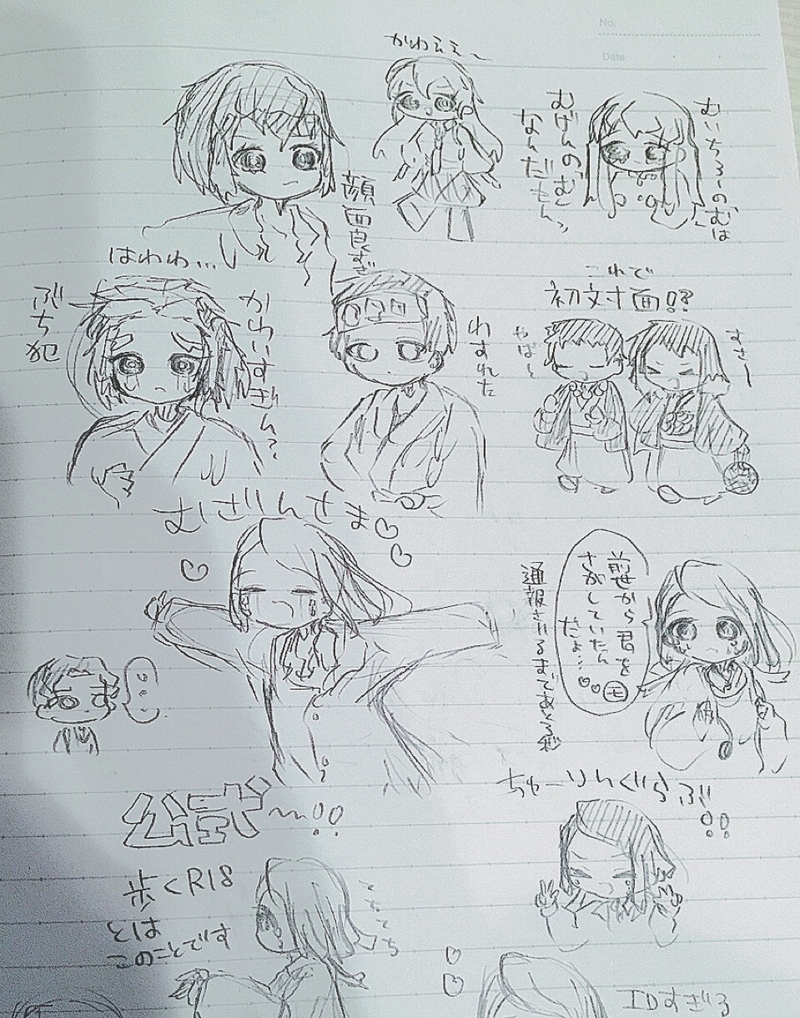 No.
Date
かわええ〜
むいちろーのむは
むげんのむ
なんだもんっ
顔面良すぎ
はわわ…
ぶち犯
かわいすぎん?
わすれた
これで
初対面!?
やば〜
すき〜
むざんさま♡
前世から君を
さがしていたん
だよ…♡♡
通報されるまであと3秒
公式〜!!
歩くR18
とは
このことです
ちゅーりんぐらぶ
!!
IDすぎる